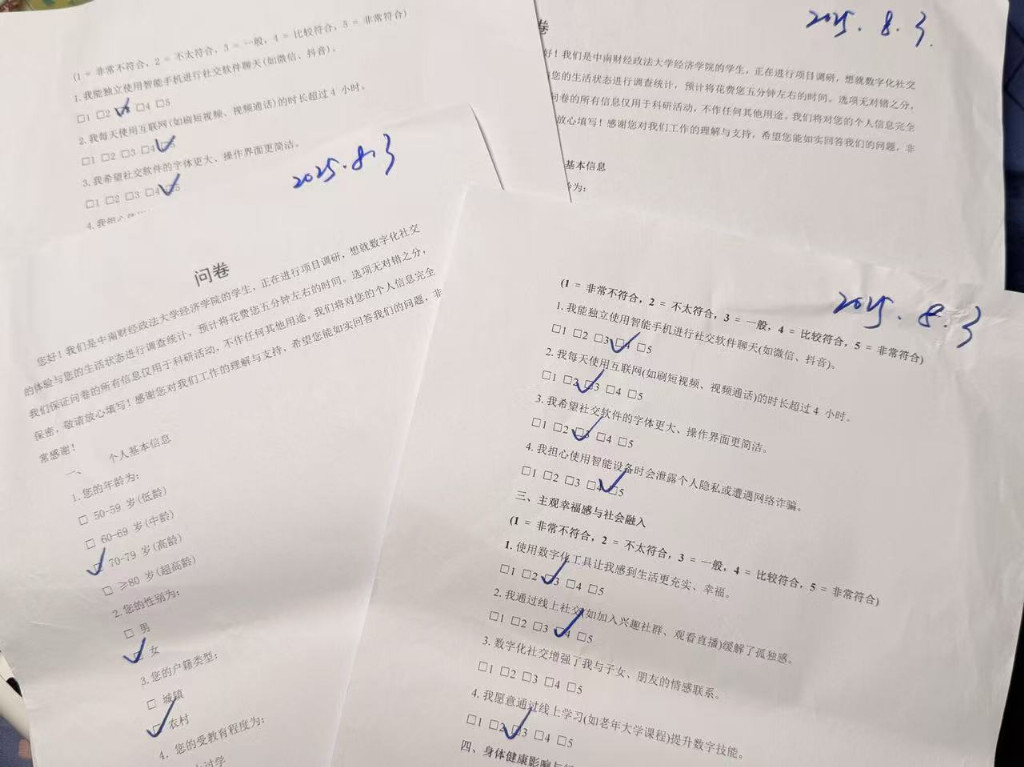 (1 = 非常不符合，2 = 不太符合，3 = 一般，4 = 比较符合，5 = 非常符合)
1.我能独立使用智能手机进行社交软件聊天(如微信、抖音)。
□1 □2 □4 □5
2.我每天使用互联网(如刷短视频、视频通话)的时长超过 4 小时。
□1 □2 □3 □4
3.我希望社交软件的字体更大、操作界面更简洁。
□1 □2 □3 □4 □5
2025.8.3
卷
好！我们是中南财经政法大学经济学院的学生，正在进行项目调研，想就数字化社交
您的生活状态进行调查统计，预计将花费您五分钟左右的时间。选项无对错之分，
问卷的所有信息仅用于科研活动，不作任何其他用途。我们将对您的个人信息完全
放心填写！感谢您对我们工作的理解与支持，希望您能如实回答我们的问题，非
基本信息
为：
2025.8.3
问卷
您好！我们是中南财经政法大学经济学院的学生，正在进行项目调研，想就数字化社交
的体验与您的生活状态进行调查统计，预计将花费您五分钟左右的时间。选项无对错之分，
我们保证问卷的所有信息仅用于科研活动，不作任何其他用途。我们将对您的个人信息完全
保密，敬请放心填写！感谢您对我们工作的理解与支持，希望您能如实回答我们的问题，非
常感谢！
一、 个人基本信息
1.您的年龄为：
□ 50-59 岁(低龄)
□ 60-69 岁(中龄)
□ 70-79 岁(高龄)
□ ≥80 岁(超高龄)
2.您的性别为：
□ 男
□ 女
3.您的户籍类型：
□ 城镇
□ 农村
4. 您的受教育程度为：
2025.8.3
(1 = 非常不符合，2 = 不太符合，3 = 一般，4 = 比较符合，5 = 非常符合)
1.我能独立使用智能手机进行社交软件聊天(如微信、抖音)。
□1 □2 □3 □4 □5
2.我每天使用互联网(如刷短视频、视频通话)的时长超过 4 小时。
□1 □2 □3 □4 □5
3.我希望社交软件的字体更大、操作界面更简洁。
□1 □2 □3 □4 □5
4.我担心使用智能设备时会泄露个人隐私或遭遇网络诈骗。
□1 □2 □3 □4 □5
三、主观幸福感与社会融入
(1 = 非常不符合，2 = 不太符合，3 = 一般，4 = 比较符合，5 = 非常符合)
1.使用数字化工具让我感到生活更充实、幸福。
□1 □2 □3 □4 □5
2.我通过线上社交(如加入兴趣社群、观看直播)缓解了孤独感。
□1 □2 □3 □4 □5
3.数字化社交增强了我与子女、朋友的情感联系。
□1 □2 □3 □4 □5
4.我愿意通过线上学习(如老年大学课程)提升数字技能。
□1 □2 □3 □4 □5
四、身体健康影响与